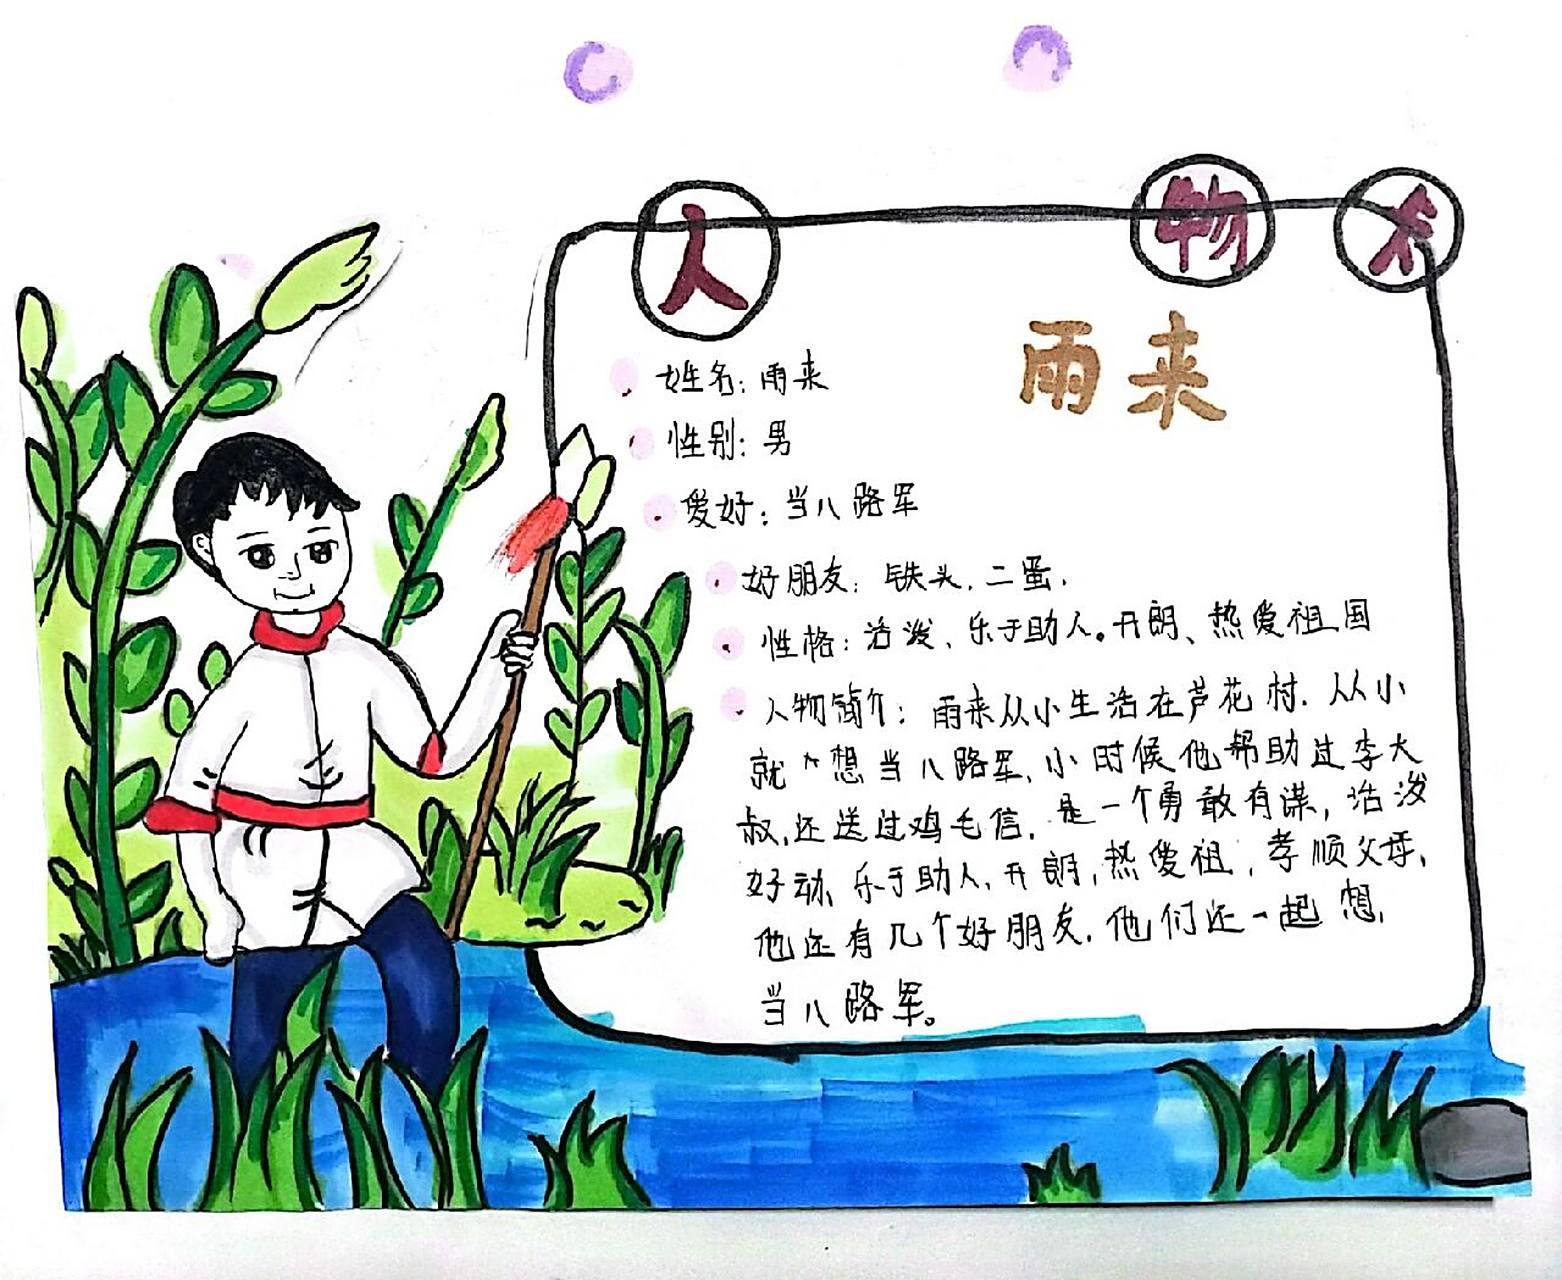 人 物 卡
雨来
姓名：雨来
性别：男
爱好：当八路军
好朋友：铁头，二蛋，
性格：活泼、乐于助人。开朗、热爱祖国
人物简介：雨来从小生活在芦花村．从小
就想当八路军，小时候他帮助过李大
叔，还送过鸡毛信，是一个勇敢有谋，活泼
好动、乐于助人，开朗，热爱祖，孝顺父母，
他还有几个好朋友，他们还一起想，
当八路军。